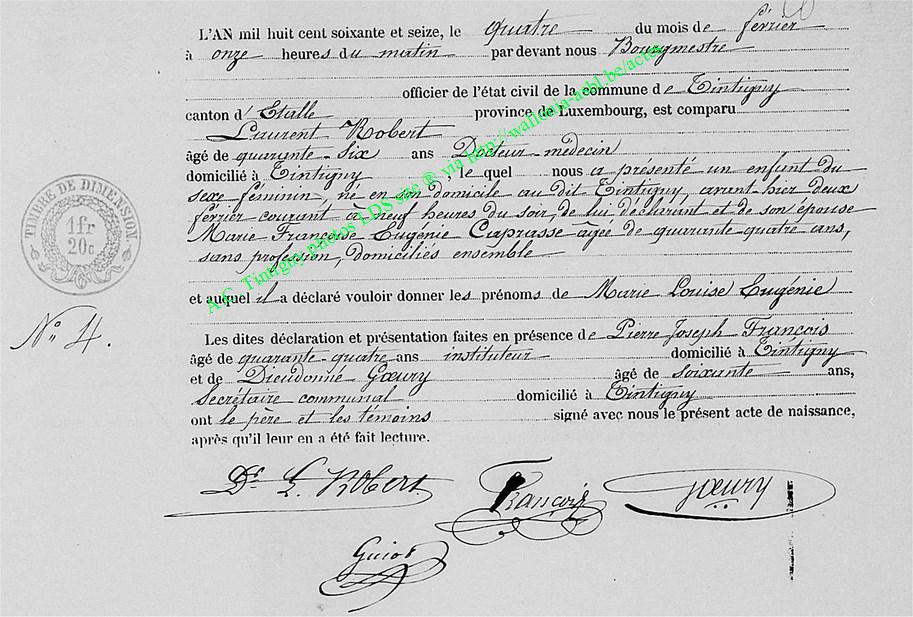 L'AN mil huit cent soixante et seize, le quatre du mois de février
à onze heures du matin par devant nous Bourgmestre
officier de l'état civil de la commune de Tintigny
canton d'Etalle province de Luxembourg, est comparu
Laurent Robert
âgé de quarante-six ans Docteur-médecin
domicilié à Tintigny, le quel nous a présenté un enfant du
sexe féminin, né en son domicile au dit Tintigny, avant hier deux
février courant à neuf heures du soir, de lui déclarant et de son épouse
Marie Françoise Eugénie Caprasse agée de quarante-quatre ans,
sans profession, domiciliés ensemble
et auquel il a déclaré vouloir donner les prénoms de Marie Louise Eugénie
Les dites déclaration et présentation faites en présence de Pierre Joseph François
âgé de quarante-quatre ans instituteur domicilié à Tintigny
et de Dieudonné Goeury âgé de soixante ans,
secrétaire communal domicilié à Tintigny
ont le père et les témoins signé avec nous le présent acte de naissance,
après qu'il leur en a été fait lecture.
Dr L. Robert
François
Goeury
Guiot
TIMBRE DE DIMENSION
1 fr
20 c
No 4.
A.C. Tintigny photos LDS size ® via http://wallonia-asbl.be/actes